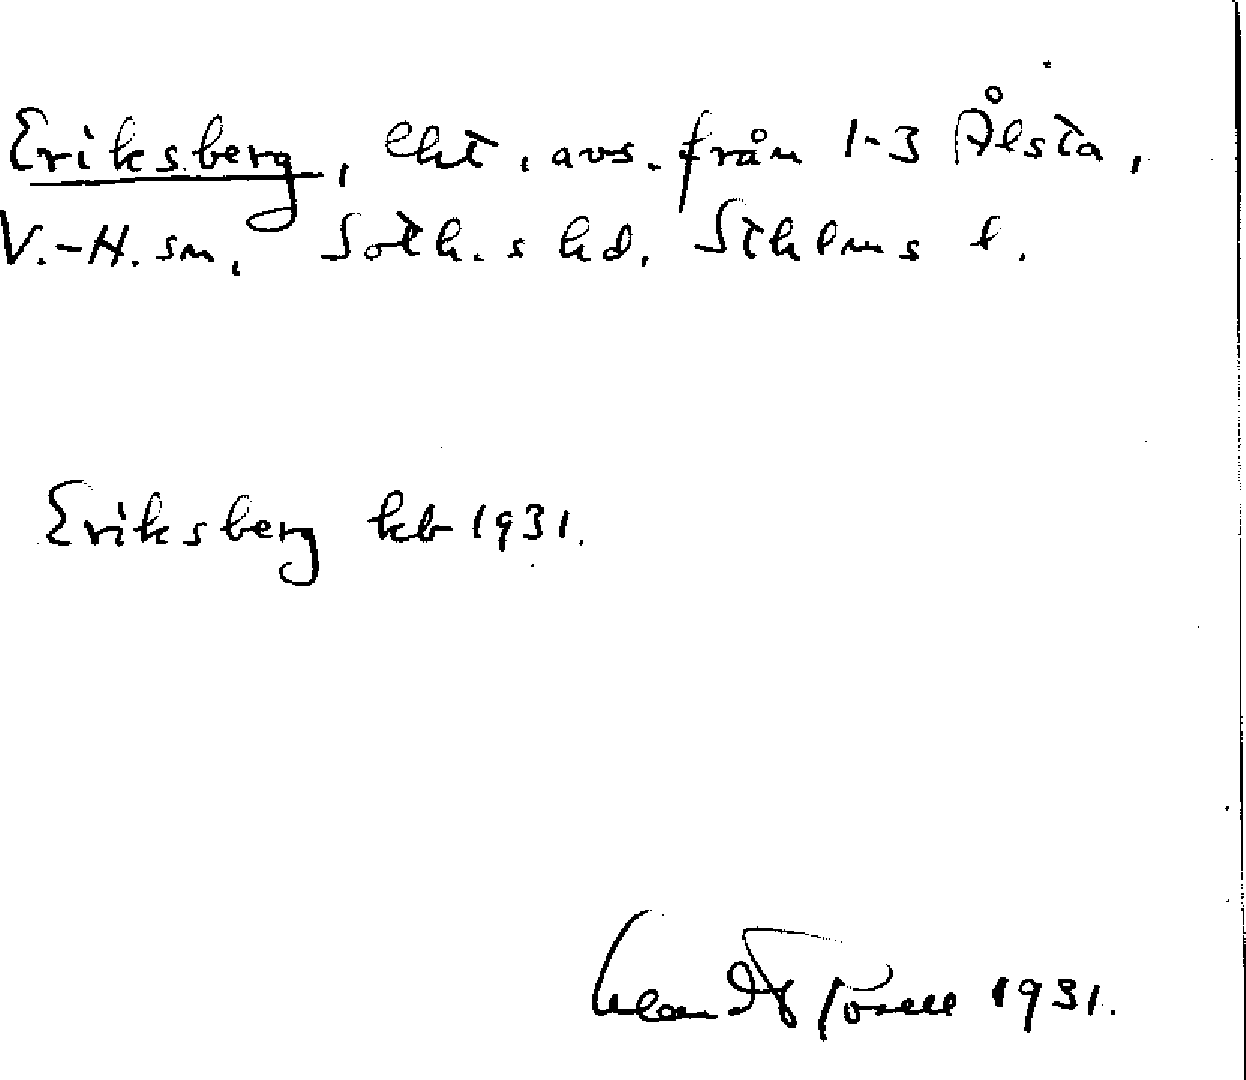 Eriksberg, lht, avs. från 1-3 Ålsta,
V.-H. sn, Soth. s hd, Sthlms l.
Eriksberg kb 1931.
1931.